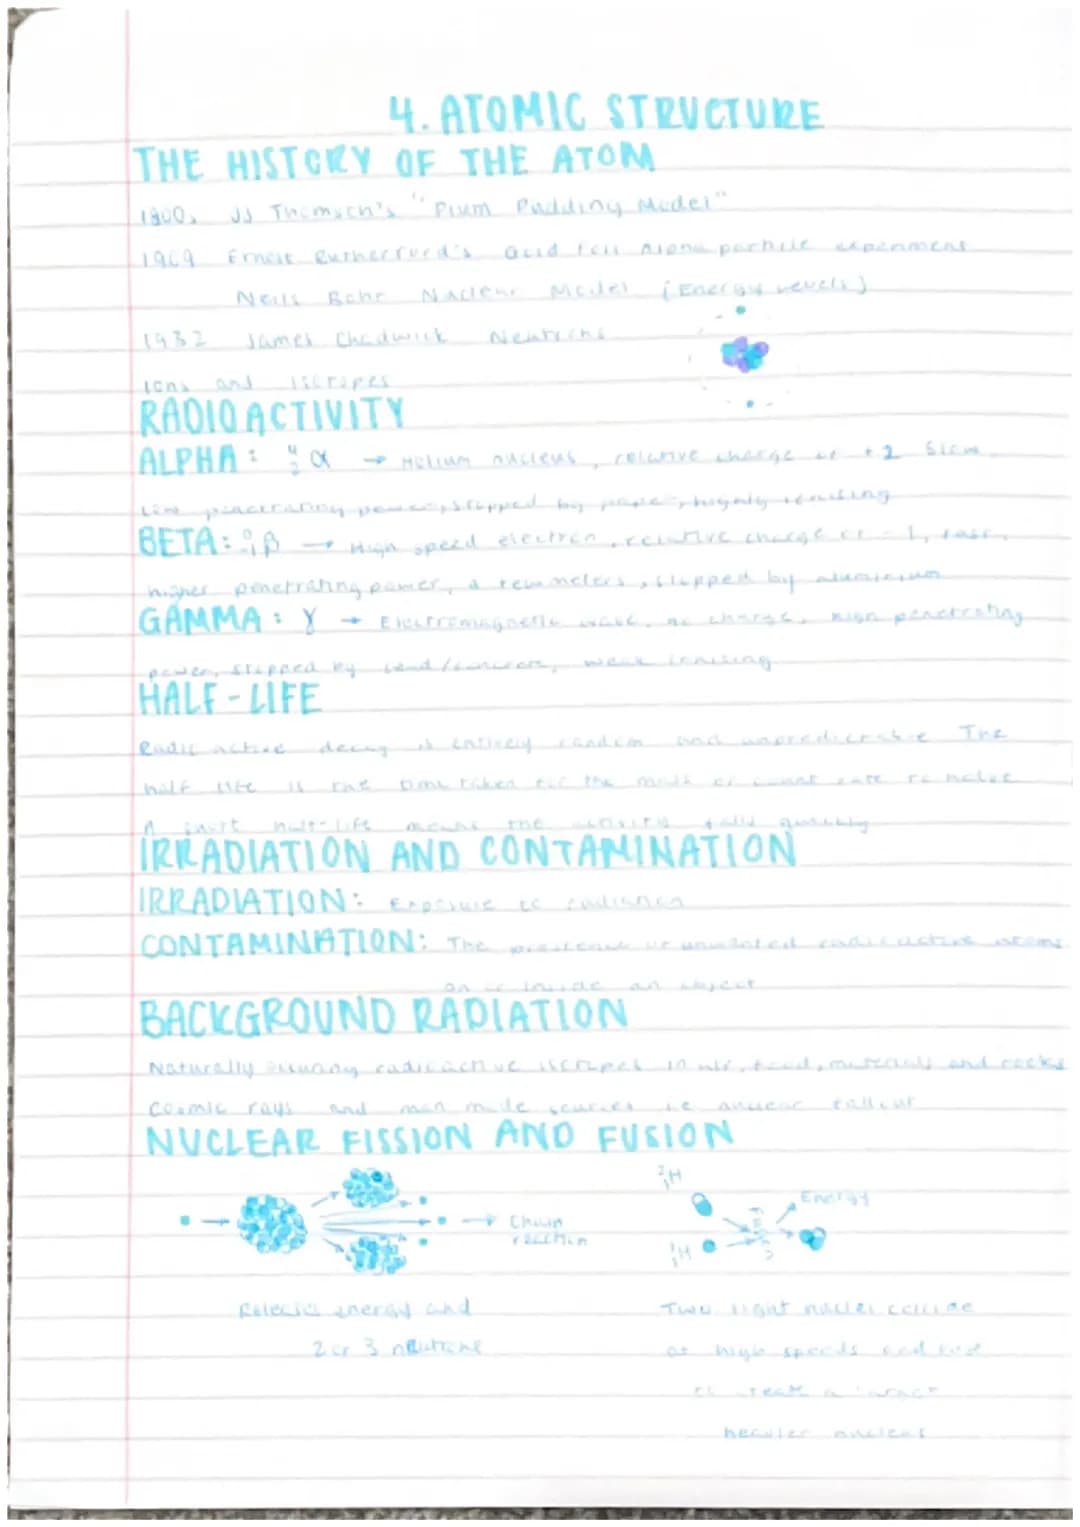 4. ATOMIC STRUCTURE
THE HISTORY OF THE ATOM
1800s JJ Thomson's "Plum Pudding Model"
1909 Ernest Rutherford's foil Alpha particle experiment
Neils Bohr Nuclear Model (Energy Levels)
1932 James Chadwick Neutrons
Ions and Isotopes
RADIOACTIVITY
ALPHA: ⁴₂α → Helium nucleus, relative charge of +2 Slow
Low penetrating power, stopped by paper, highly ionising
BETA: ⁰₋₁β → High speed electron, relative charge of -1, fast,
higher penetrating power, a few meters, stopped by aluminium
GAMMA: γ → Electromagnetic wave, no charge, high penetrating
power, stopped by lead/concrete, weak ionising
HALF-LIFE
Radioactive decay is entirely random and unpredictable The
half life is the time taken for the mass or count rate to halve
A short half-life means the activity falls quickly
IRRADIATION AND CONTAMINATION
IRRADIATION: Exposure to radiation
CONTAMINATION: The presence of unwanted radioactive atoms
on or inside an object
BACKGROUND RADIATION
Naturally radioactive isotopes in air, food, materials and rocks
Cosmic rays and man made sources ie nuclear fallout
NUCLEAR FISSION AND FUSION
²₁H
Energy
Chain
reaction
¹₁H
Releases energy and
2 or 3 neutrons
Two light nuclei collide
at high speeds and fuse
to create a larger
heavier nucleus